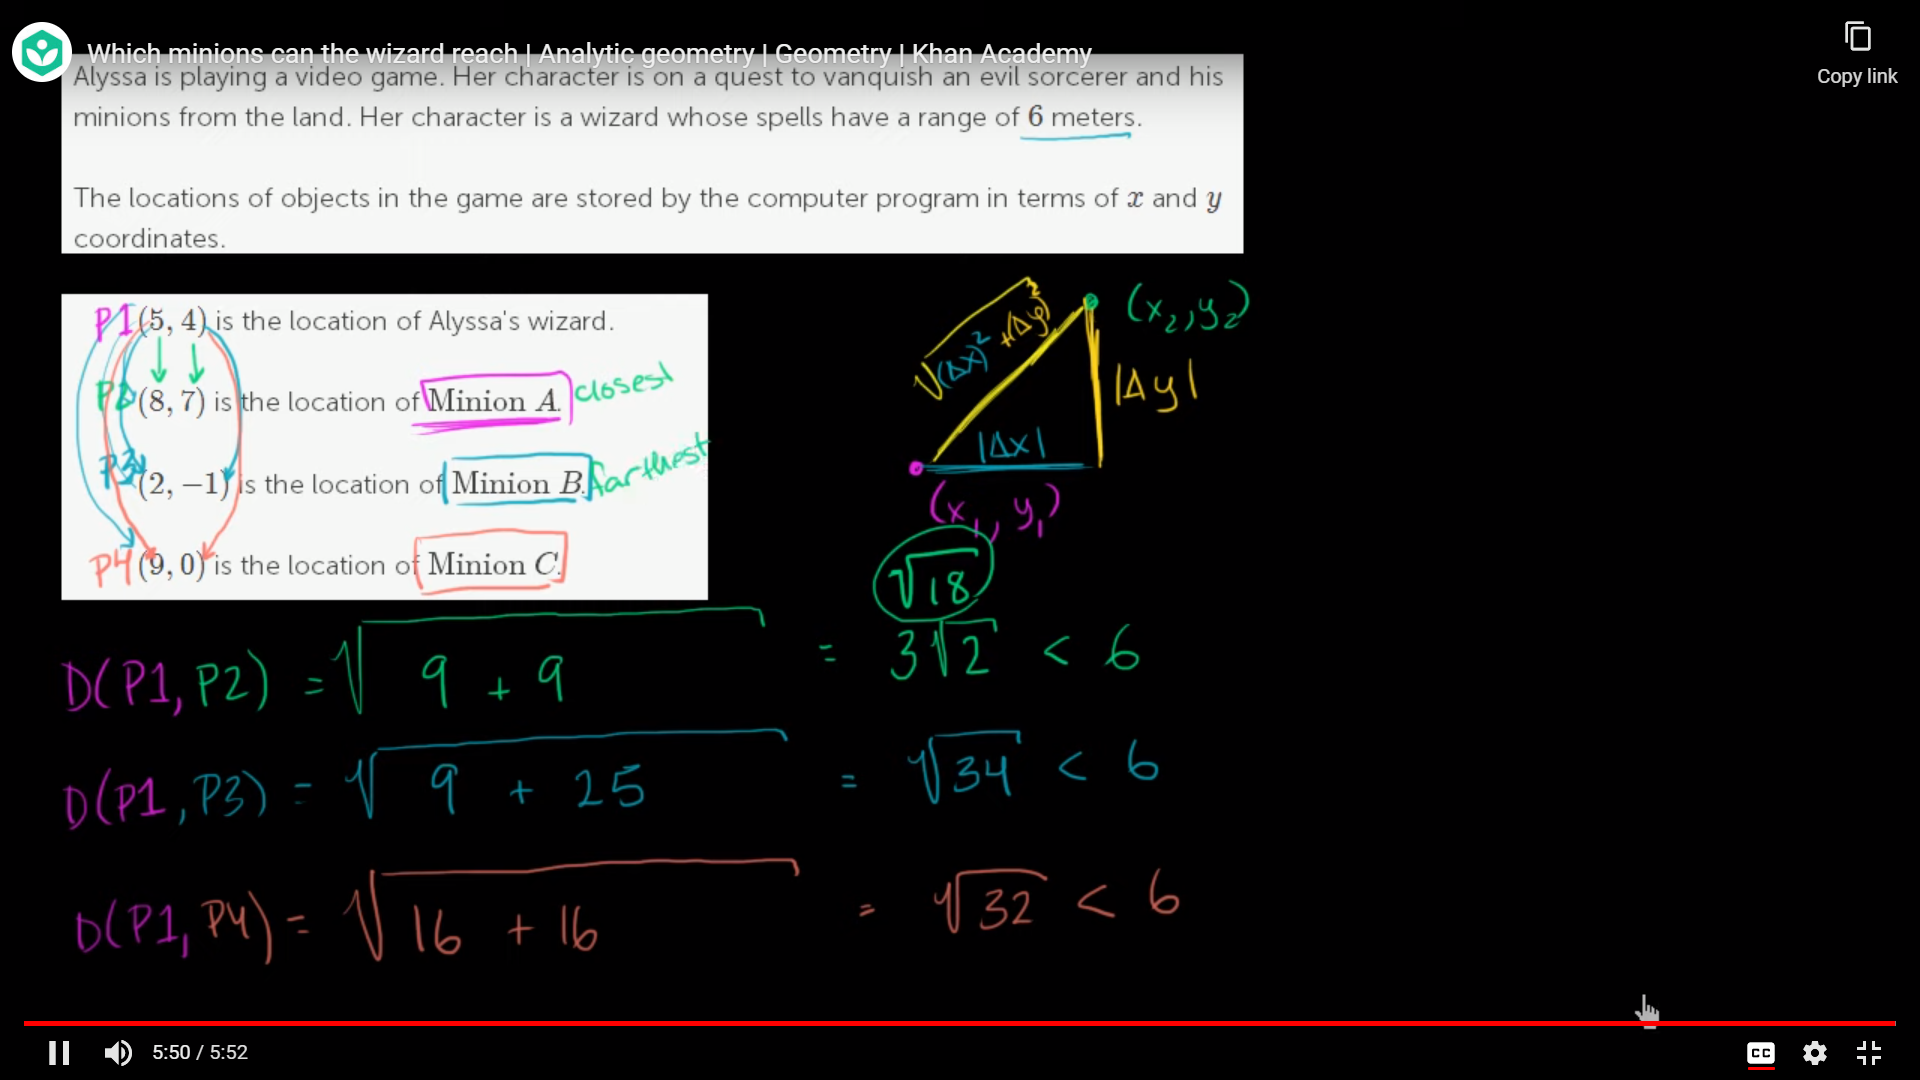 Which minions can the wizard reach | Analytic geometry | Geometry | Khan Academy
Copy link
Alyssa is playing a video game. Her character is on a quest to vanquish an evil sorcerer and his
minions from the land. Her character is a wizard whose spells have a range of 6 meters.
The locations of objects in the game are stored by the computer program in terms of x and y
coordinates.
P1 (5, 4) is the location of Alyssa's wizard.
P2 (8, 7) is the location of Minion A. closest
P3 (2, −1) is the location of Minion B. farthest
P4 (9, 0) is the location of Minion C.
√(Δx)² + (Δy)²
(x₂, y₂)
|Δy|
|Δx|
(x₁, y₁)
√18
D(P1, P2) = √9 + 9 = 3√2 < 6
D(P1, P3) = √9 + 25 = √34 < 6
D(P1, P4) = √16 + 16 = √32 < 6
5:50 / 5:52
CC